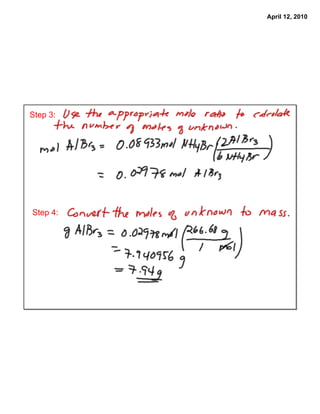 April 12, 2010
Step 3: Use the appropriate mole ratio to calculate
the number of moles of unknown.
mol AlBr₃ = 0.08933mol NH₄Br (2AlBr₃ / 6 NH₄Br)
= 0.02978 mol AlBr₃
Step 4: Convert the moles of unknown to mass.
g AlBr₃ = 0.02978 mol (266.68 g / 1 mol)
= 7.940956 g
= 7.94g